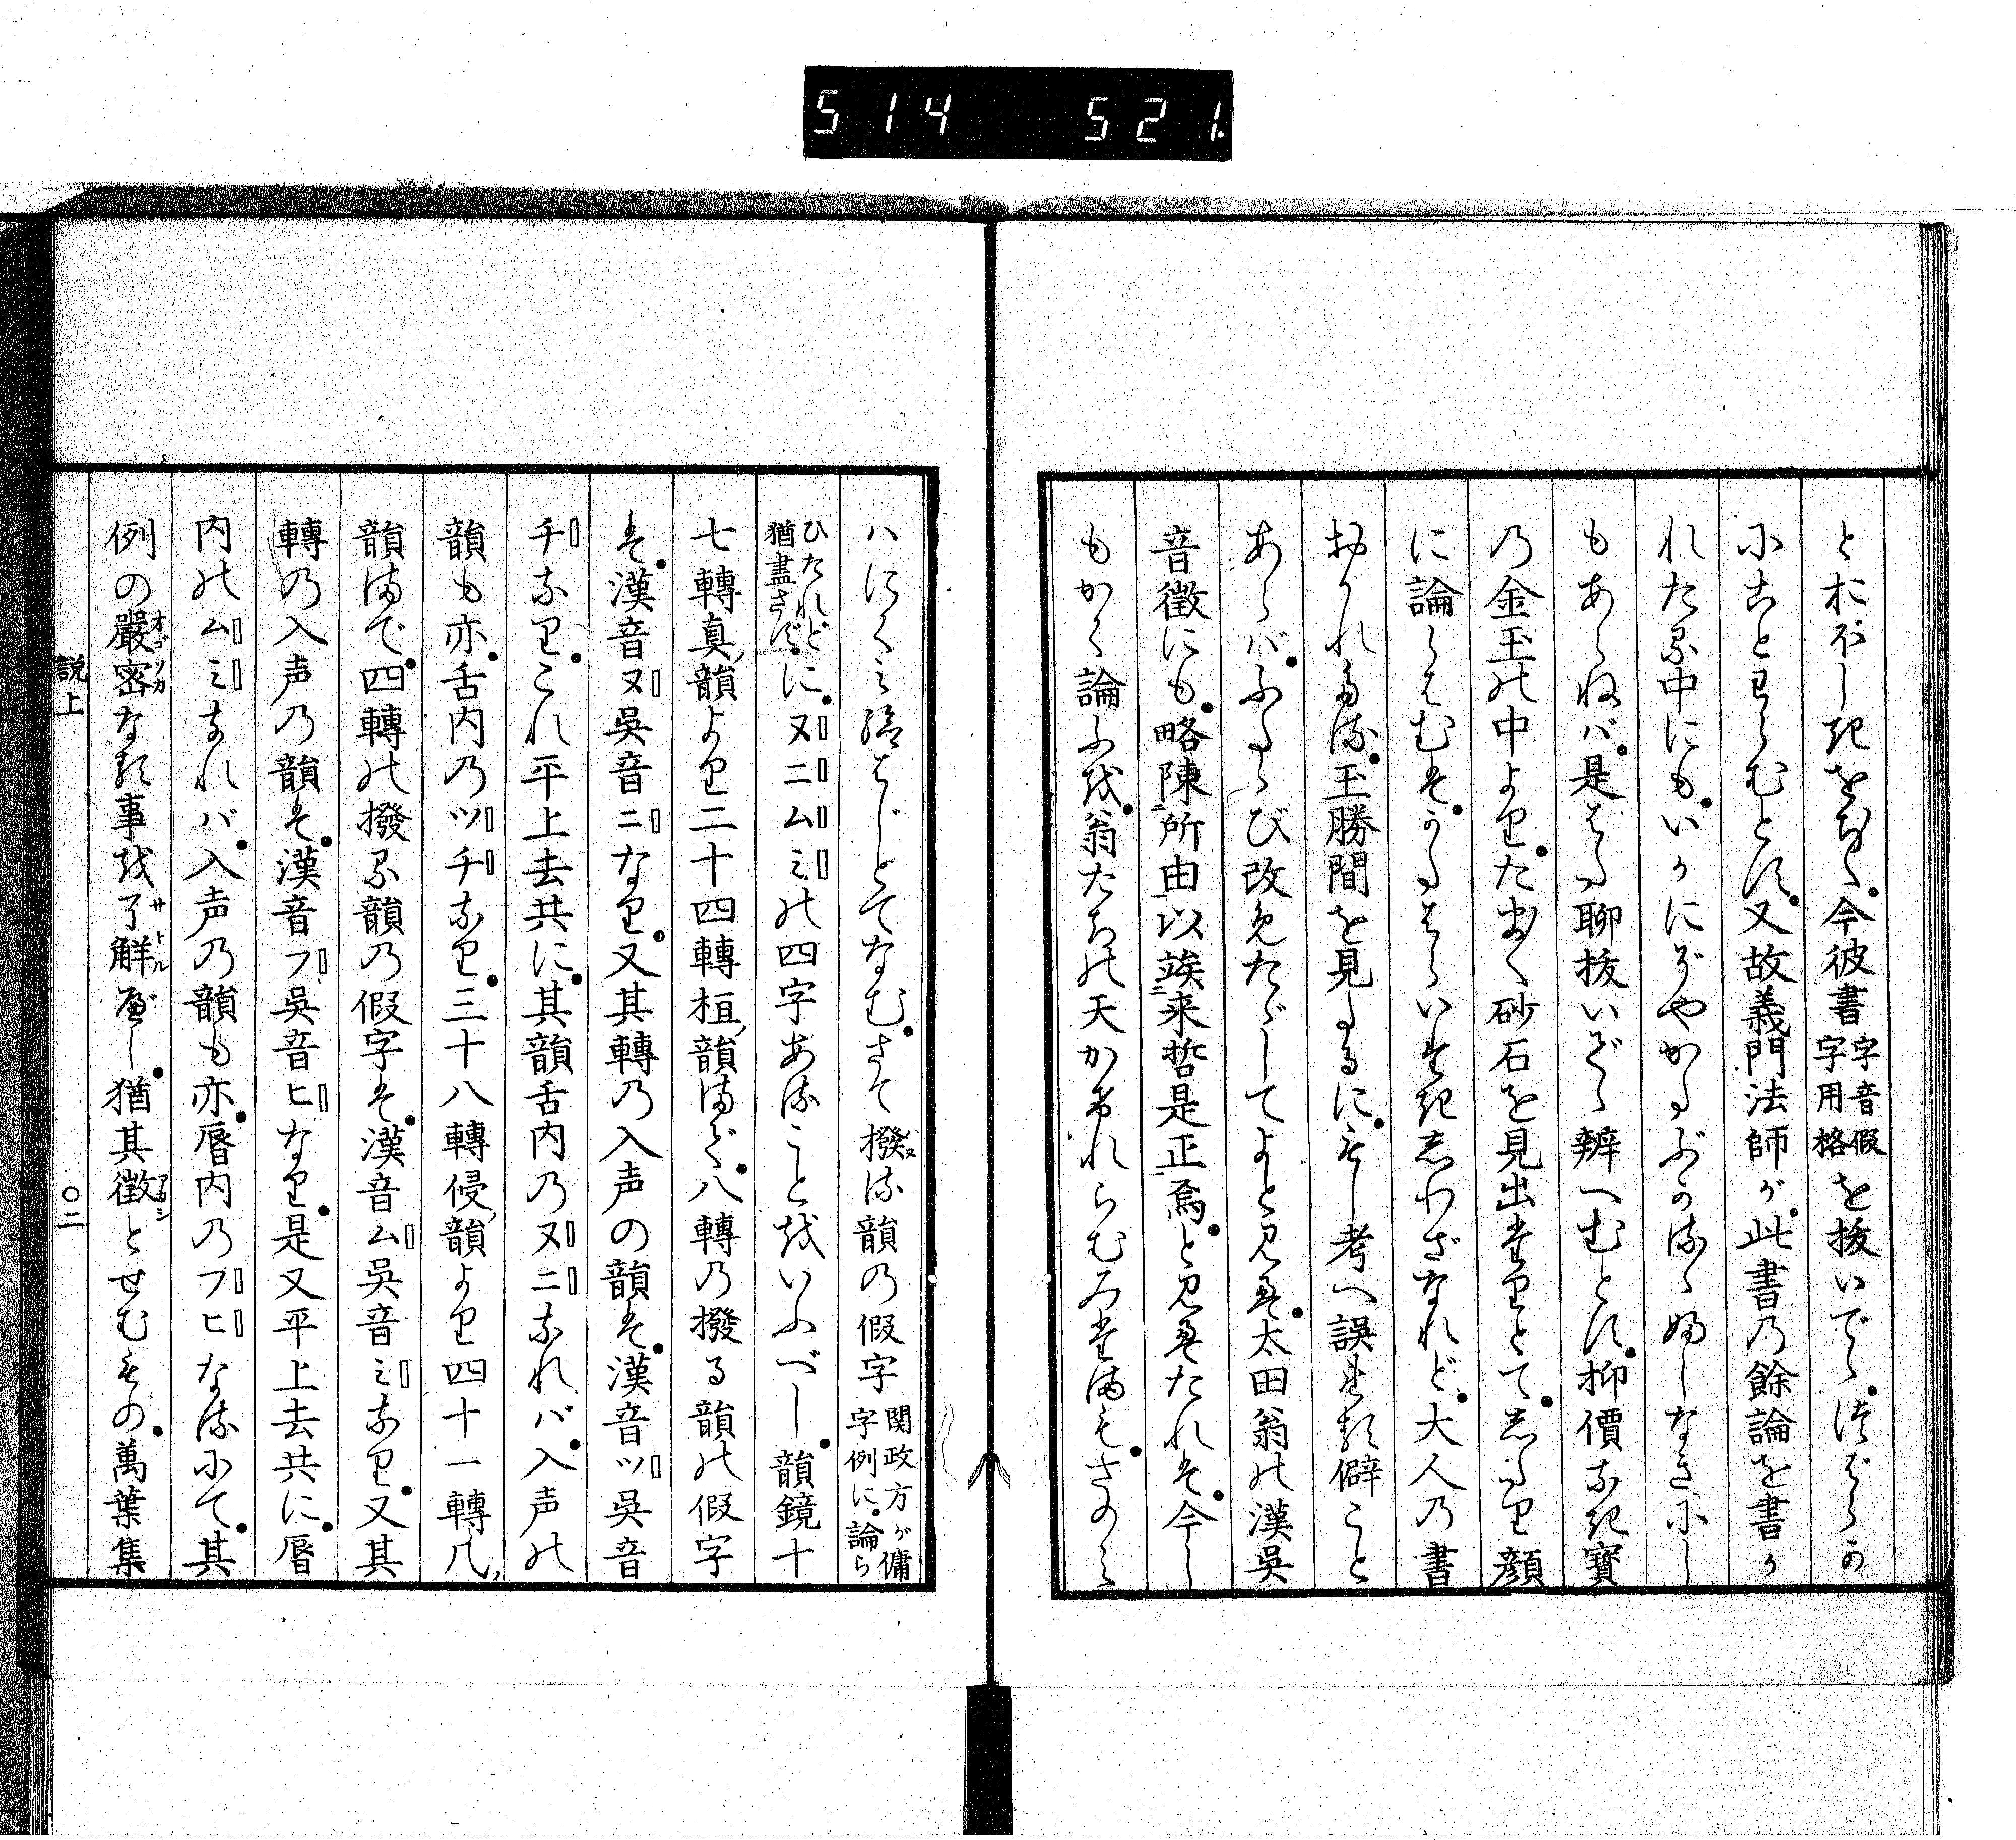 514 521
とおぼしきをば、今彼書字音假字用格を抜いでゝ、つばらか
にことわらむとす、又故義門法師が、此書乃餘論を書か
れたる中にも、いかにぞやかたぶかるゝ婦しなきにし
もあらねバ、是はた聊抜いでゝ辨へむとす、抑價なき寶
乃金玉の中より、たまたま砂石を見出たりとて、したり顔
に論らはむは、かたはらいたきしわざなれど、大人乃書
おかれたる、玉勝間を見たるに、もし考へ誤れる僻こと
あらバ、ふたゝび改めたゞしてよと見え、太田翁の漢呉
音徴にも、略陳所由以竢来哲是正焉、と見えたれば、今し
もかく論ふを、翁たちの天がけれらむみたまも、さのみ
ハにくみ給はじとてなむ、さて撥ヌる韻の假字関政方が傭字例に、論ら
ひたれど猶盡さずに、ヌニムミの四字あることをいふべし、韻鏡十
七轉真韻より二十四轉桓韻まで、八轉乃撥る韻の假字
は、漢音ヌ呉音ニなり、又其轉乃入声の韻は、漢音ツ呉音
チなり、これ平上去共に、其韻舌内乃ヌニなれバ、入声の
韻も亦、舌内乃ツチなり、三十八轉侵韻より四十一轉凡
韻まで、四轉の撥る韻乃假字は、漢音ム呉音ミなり、又其
轉乃入声乃韻は、漢音フ呉音ヒなり、是又平上去共に、唇
内のムミなれバ、入声乃韻も亦、唇内乃フヒなるにて、其
例の嚴密オゴソカなる事を了解サトルべし、猶其徴アカシとせむもの、萬葉集
説上 〇二